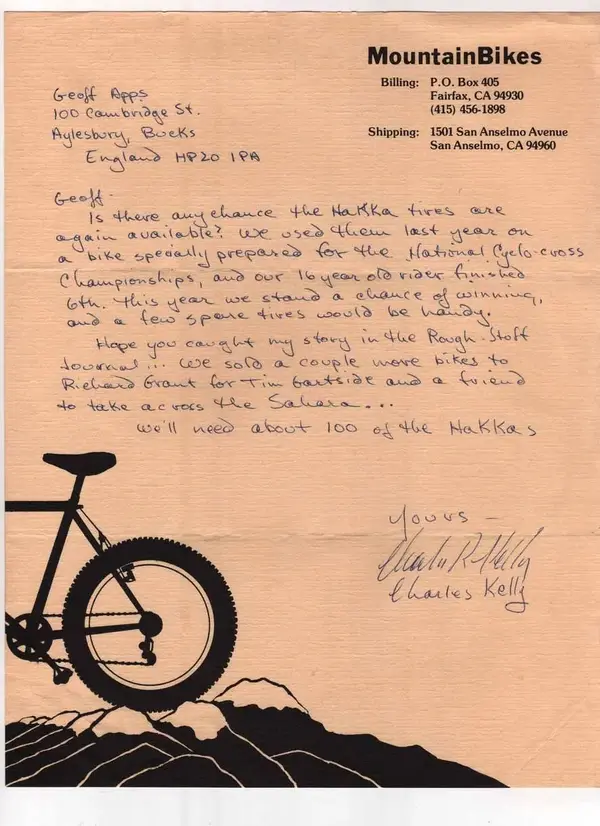 MountainBikes
Billing: P.O. Box 405
Fairfax, CA 94930
(415) 456-1898
Shipping: 1501 San Anselmo Avenue
San Anselmo, CA 94960
Geoff Apps
100 Cambridge St.
Aylesbury, Bucks
England HP20 1PA
Geoff-
Is there any chance the Hakka tires are
again available? We used them last year on
a bike specially prepared for the National Cyclo-cross
Championships, and our 16 year old rider finished
6th. This year we stand a chance of winning,
and a few spare tires would be handy.
Hope you caught my story in the Rough-Stuff
Journal... We sold a couple more bikes to
Richard Grant for Tim Gartside and a friend
to take across the Sahara...
We'll need about 100 of the Hakkas
Yours -
Charles R Kelly
Charles Kelly